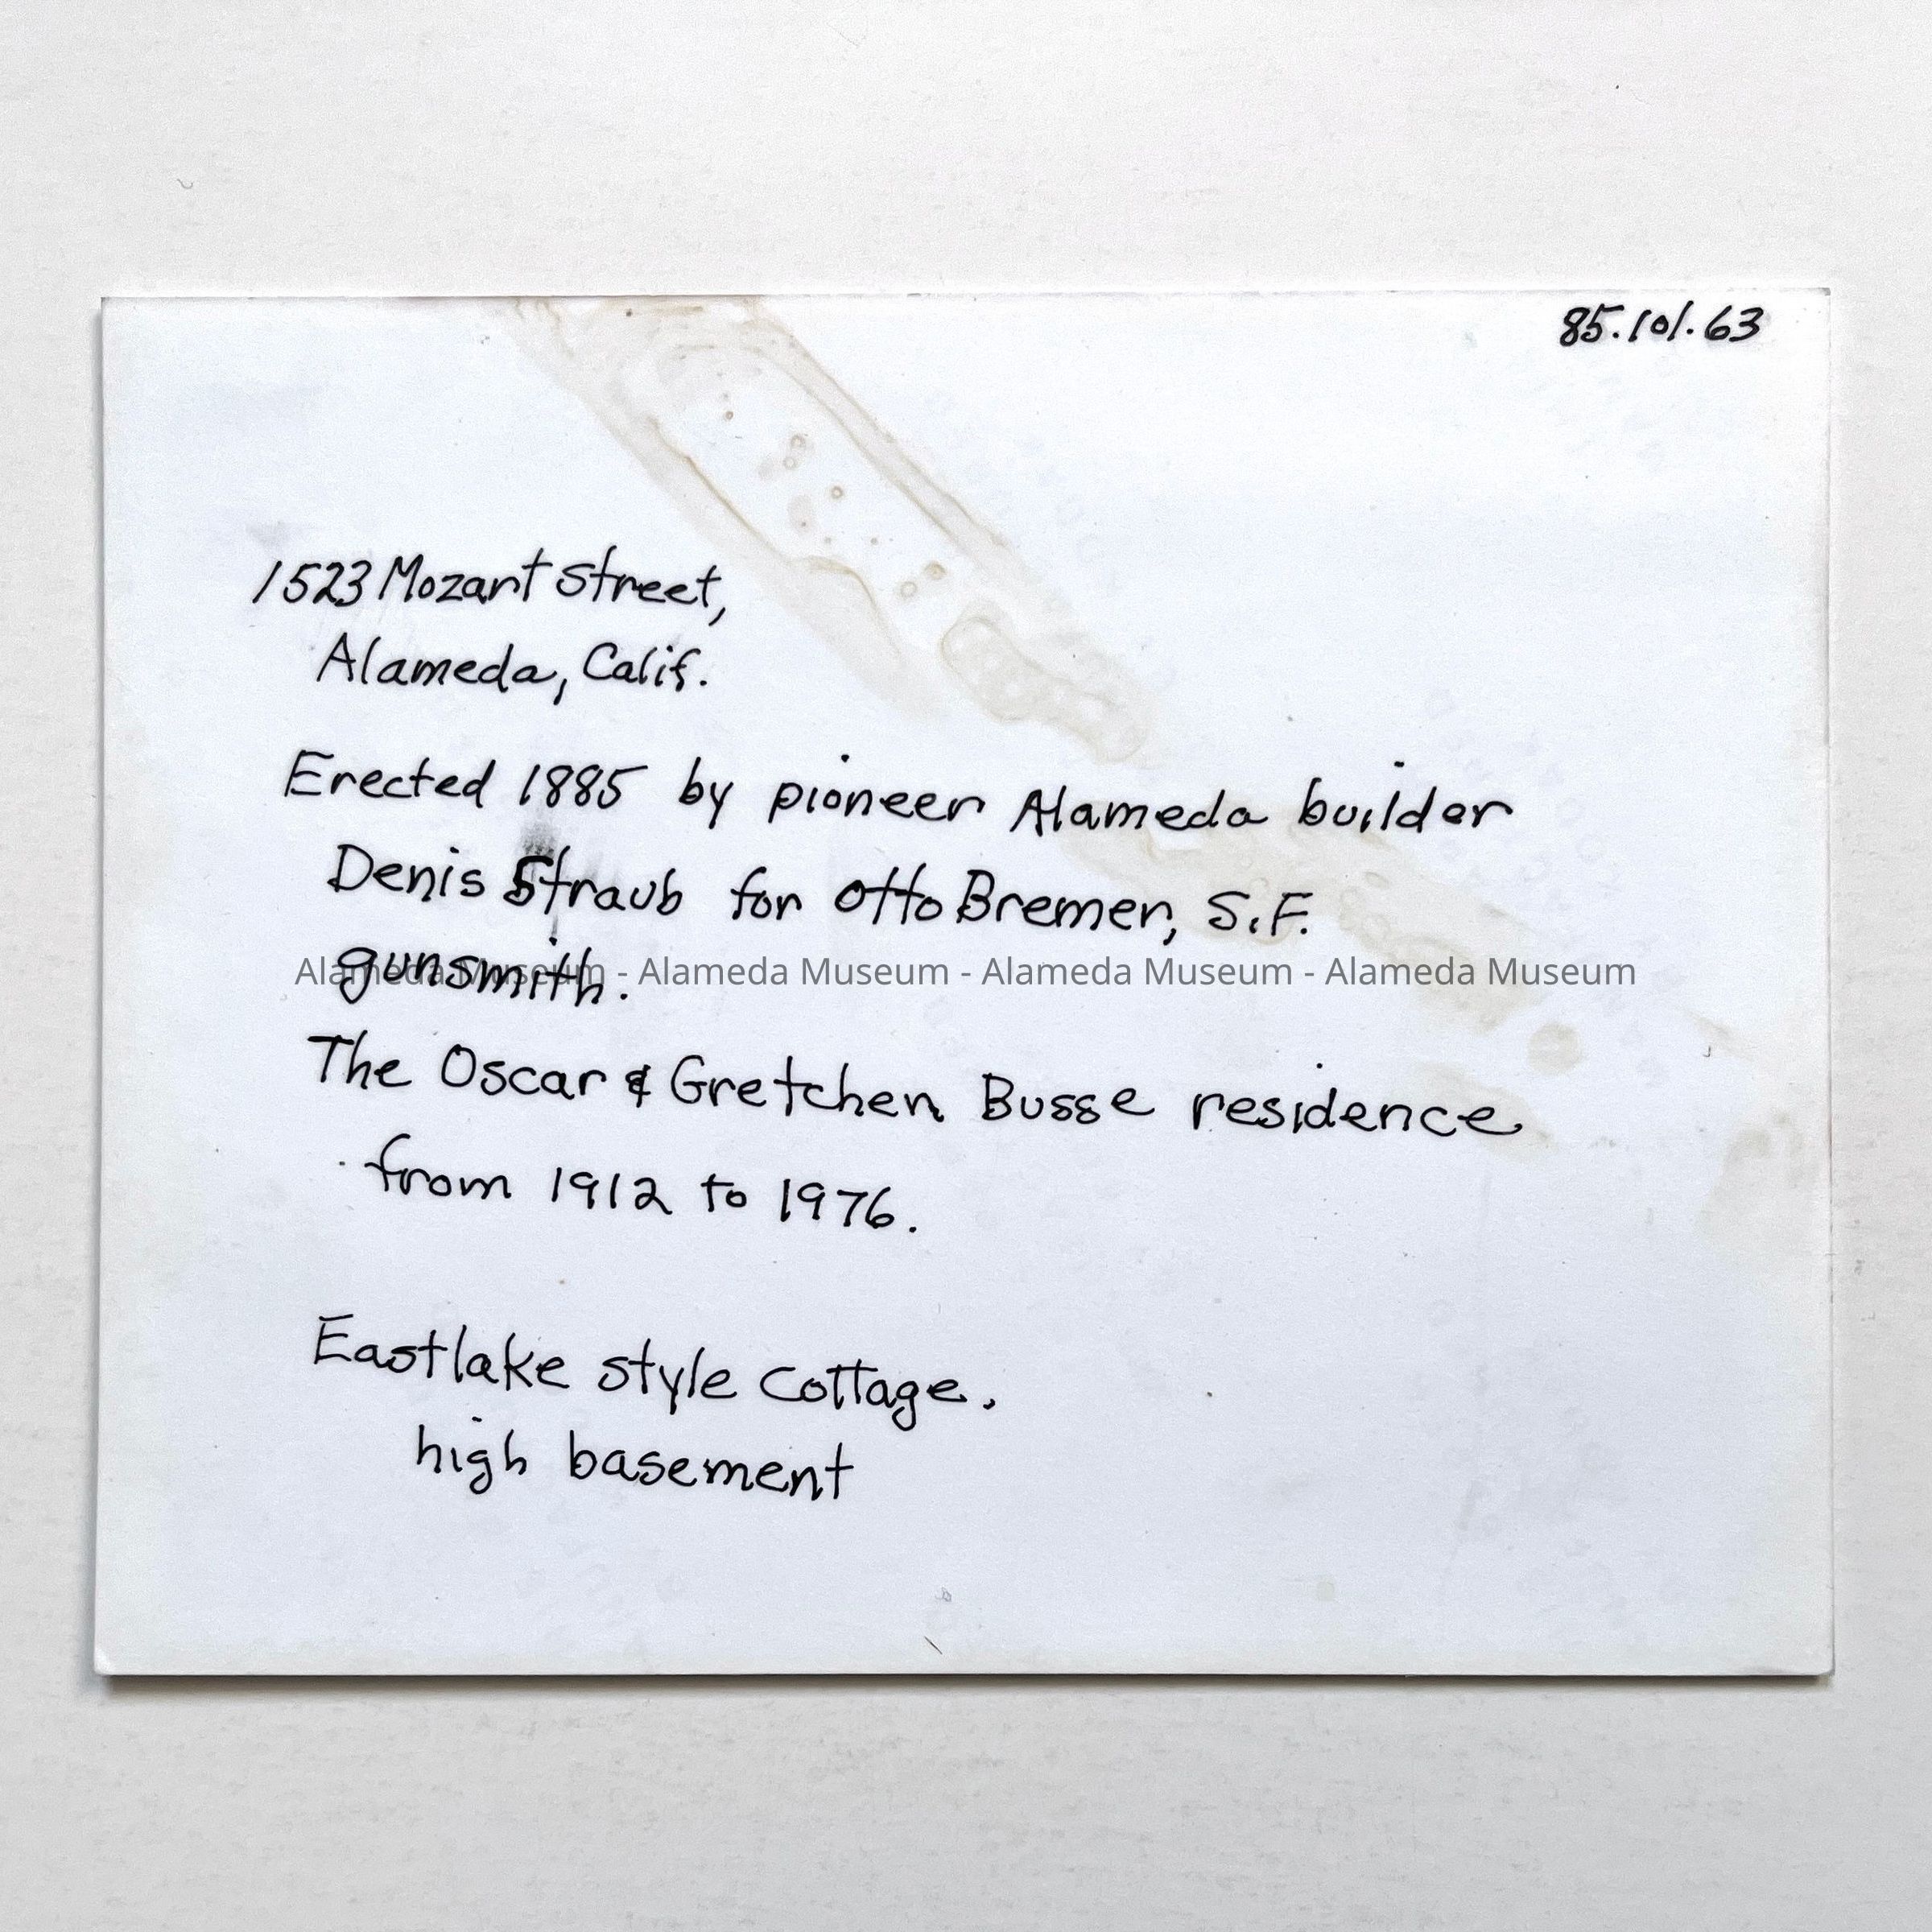 85.101.63
1523 Mozart Street,
Alameda, Calif.
Erected 1885 by pioneer Alameda builder
Denis Straub for Otto Bremer, S.F.
gunsmith.
Alameda Museum - Alameda Museum - Alameda Museum - Alameda Museum
The Oscar & Gretchen Busse residence
from 1912 to 1976.
Eastlake style cottage.
high basement